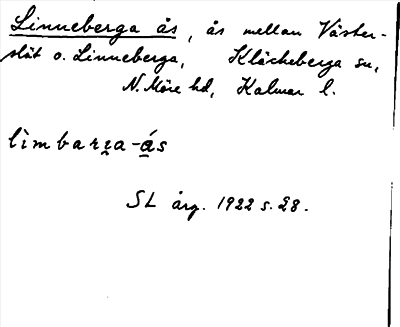 Linneberga ås, ås mellan Väster-
slät o. Linneberga, Kläckeberga sn,
N. Möre hd, Kalmar l.
limbarza-ás
SL årg. 1922 s. 28.